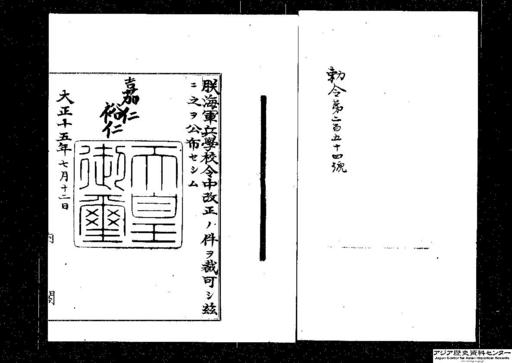 勅令第二百五十四號
朕海軍兵學校令中改正ノ件ヲ裁可シ茲
ニ之ヲ公布セシム
嘉仁
裕仁
天皇
御璽
大正十五年七月十二日
内閣
アジア歴史資料センター
Japan Center for Asian Historical Records